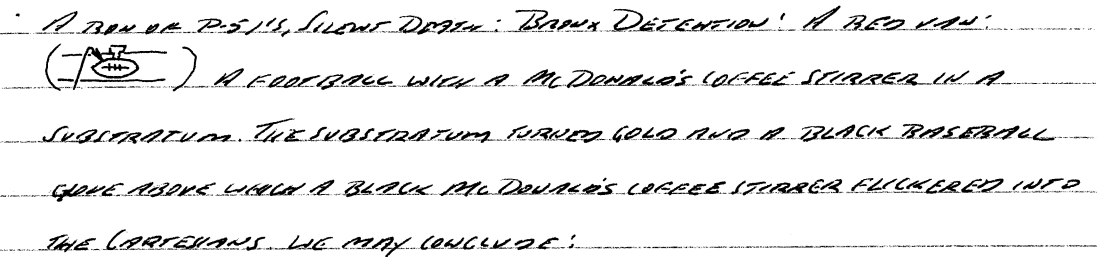 A BOX OF P-51'S, SILENT DEATH: BRONX DETENTION: A RED VAN:
( ) A FOOTBALL WITH A McDONALD'S COFFEE STIRRER IN A
SUBSTRATUM. THE SUBSTRATUM TURNED GOLD AND A BLACK BASEBALL
GLOVE ABOVE WHICH A BLACK McDONALD'S COFFEE STIRRER FLICKERED INTO
THE CARTESIANS. WE MAY CONCLUDE: